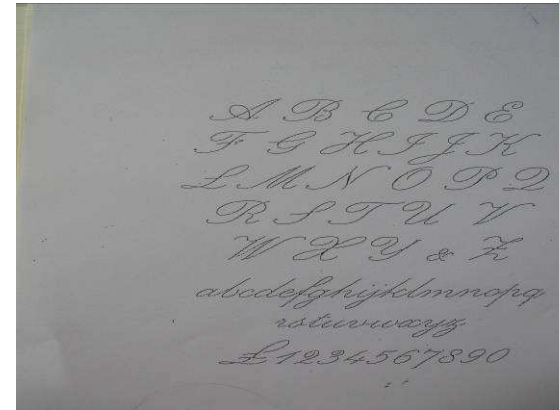 A B C D E
F G H I J K
L M N O P Q
R S T U V
W X Y & Z
abcdefghijklmnopq
rstuvwxyz
£1234567890